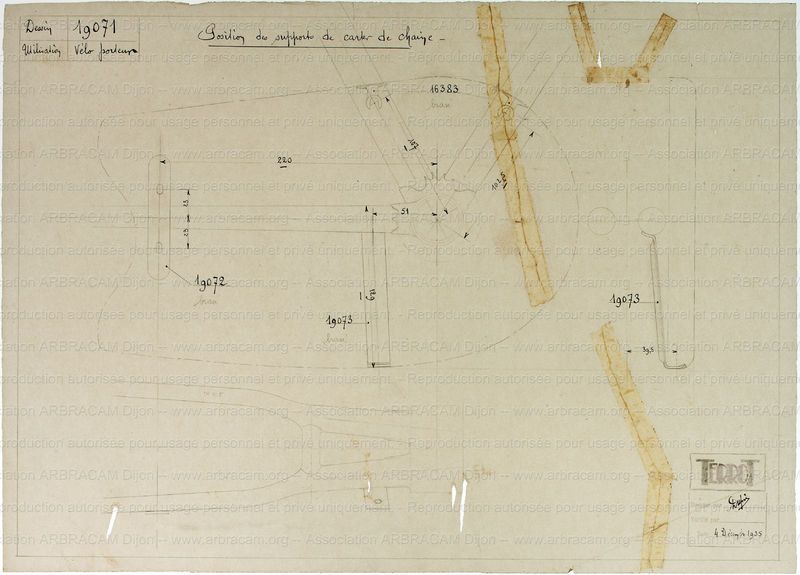 Dessin 19071
Utilisation Vélo porteur
Position des supports de carter de chaîne
16383
brau
107
220
102,5
51
25
25
19072
brau
129
19073
brau
19073
39,5
TERROT
4 Décembre 1935
Reproduction autorisée pour usage personnel et privé uniquement
Association ARBRACAM Dijon -- www.arbracam.org